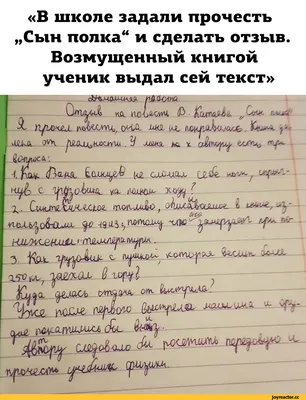 «В школе задали прочесть
„Сын полка“ и сделать отзыв.
Возмущенный книгой
ученик выдал сей текст»
Домашняя работа
Отзыв на повесть В. Катаева „Сын полка"
Я прочел повесть, она мне не понравилась. Книга да-
лека от реальности. У меня к автору есть три
вопроса:
1. Как Ваня Солнцев не сломал себе ноги, спрыг-
нув с грузовика на полном ходу?
2. Синтетическое топливо, описываемое в книге, ис-
пользовали до 1943г, потому что оно замерзает при по-
нижении температуры.
3. Как грузовик с пушкой, которая весит более
250 кг, заехал в гору?
Куда делась отдача от выстрела?
Уже после первого выстрела машина и ору-
дие покатились бы вниз.
Автору следовало бы посетить передовую и
прочесть учебник физики.
joyreactor.cc